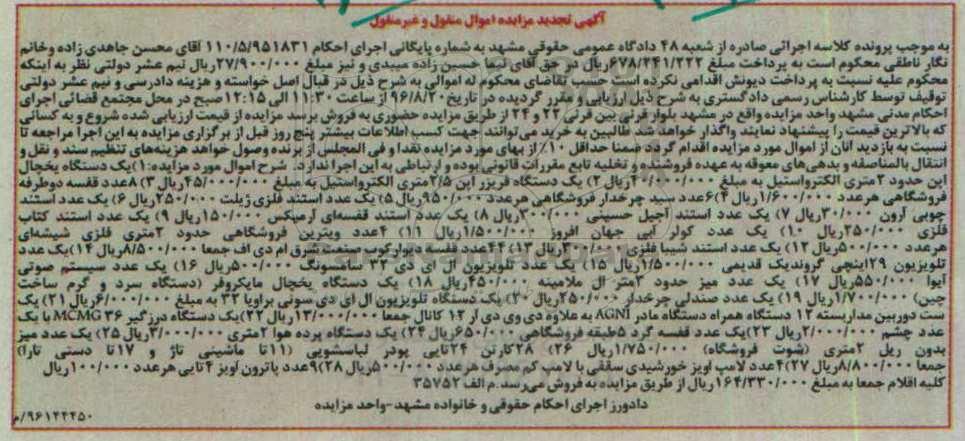 آگهی تجدید مزایده اموال منقول و غیرمنقول
به موجب پرونده کلاسه اجرائی صادره از شعبه ۴۸ دادگاه عمومی حقوقی مشهد به شماره بایگانی اجرای احکام ۱۱۰/۵/۹۵۱۸۳۱ آقای محسن جاهدی زاده وخانم
نگار ناطقی محکوم است به پرداخت مبلغ ۶۷۸/۲۴۱/۲۲۲ریال در حق آقای نیما حسین زاده میبدی و نیز مبلغ ۲۷/۹۰۰/۰۰۰ریال نیم عشر دولتی نظر به اینکه
محکوم علیه نسبت به پرداخت دیونش اقدامی نکرده است حسب تقاضای محکوم له اموالی به شرح ذیل در قبال اصل خواسته و هزینه دادرسی و نیم عشر دولتی
توقیف توسط کارشناس رسمی دادگستری به شرح ذیل ارزیابی و مقرر گردیده در تاریخ ۹۶/۸/۲۰ از ساعت ۱۱:۳۰ الی ۱۲:۱۵ صبح در محل مجتمع قضائی اجرای
احکام مدنی مشهد واحد مزایده واقع در مشهد بلوار قرنی بین قرنی ۲۲ و ۲۴ از طریق مزایده حضوری به فروش برسد مزایده از قیمت ارزیابی شده شروع و به کسانی
که بالاترین قیمت را پیشنهاد نمایند واگذار خواهد شد طالبین به خرید می‌توانند جهت کسب اطلاعات بیشتر پنج روز قبل از برگزاری مزایده به این اجرا مراجعه تا
نسبت به بازدید آنان از اموال مورد مزایده اقدام گردد ضمنا حداقل ۱۰٪ از بهای مورد مزایده نقدا و فی المجلس از برنده وصول خواهد هزینه‌های تنظیم سند و نقل و
انتقال بالمناصفه و بدهی‌های معوقه به عهده فروشنده و تخلیه تابع مقررات قانونی بوده و ارتباطی به این اجرا ندارد. شرح اموال مورد مزایده:۱)یک دستگاه یخچال
اپن حدود ۲متری الکترواستیل به مبلغ ۴۰/۰۰۰/۰۰۰ریال ۲) یک دستگاه فریزر اپن ۲/۵متری الکترواستیل به مبلغ ۴۵/۰۰۰/۰۰۰ریال ۳) ۸عدد قفسه دوطرفه
فروشگاهی هرعدد ۱/۶۰۰/۰۰۰ریال ۴)۶عدد سبد چرخدار فروشگاهی هرعدد ۹۵۰/۰۰۰ریال ۵) یک عدد استند فلزی ژیلت ۲۵۰/۰۰۰ریال ۶) یک عدد استند
چوبی آرون ۳۰/۰۰۰ریال ۷) یک عدد استند آجیل حسینی ۳۰۰/۰۰۰ریال ۸) یک عدد استند قفسه‌ای ارمیکس ۱۵۰/۰۰۰ریال ۹) یک عدد استند کتاب
فلزی ۲۵۰/۰۰۰ریال ۱۰) یک عدد کولر آبی جهان افروز ۱/۵۰۰/۰۰۰ریال ۱۱) ۴عدد ویترین فروشگاهی حدود ۲متری فلزی شیشه‌ای
هرعدد ۵۰۰/۰۰۰ریال ۱۲) یک عدد استند شیبا فلزی ۳۰۰/۰۰۰ریال ۱۳) ۴۴عدد قفسه دیوارکوب صنعت شرق ام دی اف جمعا ۸/۵۰۰/۰۰۰ریال ۱۴)یک عدد
تلویزیون ۲۹اینچی گروندیک قدیمی ۱/۵۰۰/۰۰۰ریال ۱۵) یک عدد تلویزیون ال ای دی ۳۲ سامسونگ ۵۰۰/۰۰۰ریال ۱۶) یک عدد سیستم صوتی
آیوا ۵۵۰/۰۰۰ریال ۱۷) یک عدد میز حدود ۲متر ال ملامینه ۴۵۰/۰۰۰ریال ۱۸) یک دستگاه یخچال مایکروفر (دستگاه سرد و گرم ساخت
چین) ۱/۷۰۰/۰۰۰ریال ۱۹) یک عدد صندلی چرخدار ۲۵۰/۰۰۰ریال ۲۰) یک دستگاه تلویزیون ال ای دی سونی براویا ۳۲ به مبلغ ۶/۰۰۰/۰۰۰ریال ۲۱) یک
ست دوربین مداربسته ۱۲ دستگاه همراه دستگاه مادر AGNI به علاوه دی وی دی آر ۱۲ کانال جمعا ۱۳/۰۰۰/۰۰۰ریال ۲۲)یک دستگاه درزگیر MCMG ۳۶ با یک
عدد چشم ۲/۰۰۰/۰۰۰ریال ۲۳)یک عدد قفسه گرد ۵طبقه فروشگاهی ۶۵۰/۰۰۰ریال ۲۴) یک دستگاه پرده هوا ۲متری ۳/۰۰۰/۰۰۰ریال ۲۵) یک عدد میز
بدون ریل ۲متری (شوت فروشگاه) ۱/۷۵۰/۰۰۰ریال ۲۶) ۲۸کارتن ۲۴تایی پودر لباسشویی (۱۱تا ماشینی تاژ و ۱۷تا دستی تارا)
جمعا ۸/۸۰۰/۰۰۰ریال ۲۷)۴عدد لامپ آویز خورشیدی سقفی با لامپ کم مصرف هرعدد ۵۰۰/۰۰۰ریال ۲۸)۹عدد پاترون آویز ۴تایی هرعدد ۱۰۰/۰۰۰ریال
کلیه اقلام جمعا به مبلغ ۱۶۴/۳۳۰/۰۰۰ریال از طریق مزایده به فروش می‌رسد.م الف ۳۵۷۵۲
دادورز اجرای احکام حقوقی و خانواده مشهد-واحد مزایده
۹۶۱۲۴۴۵۰/م